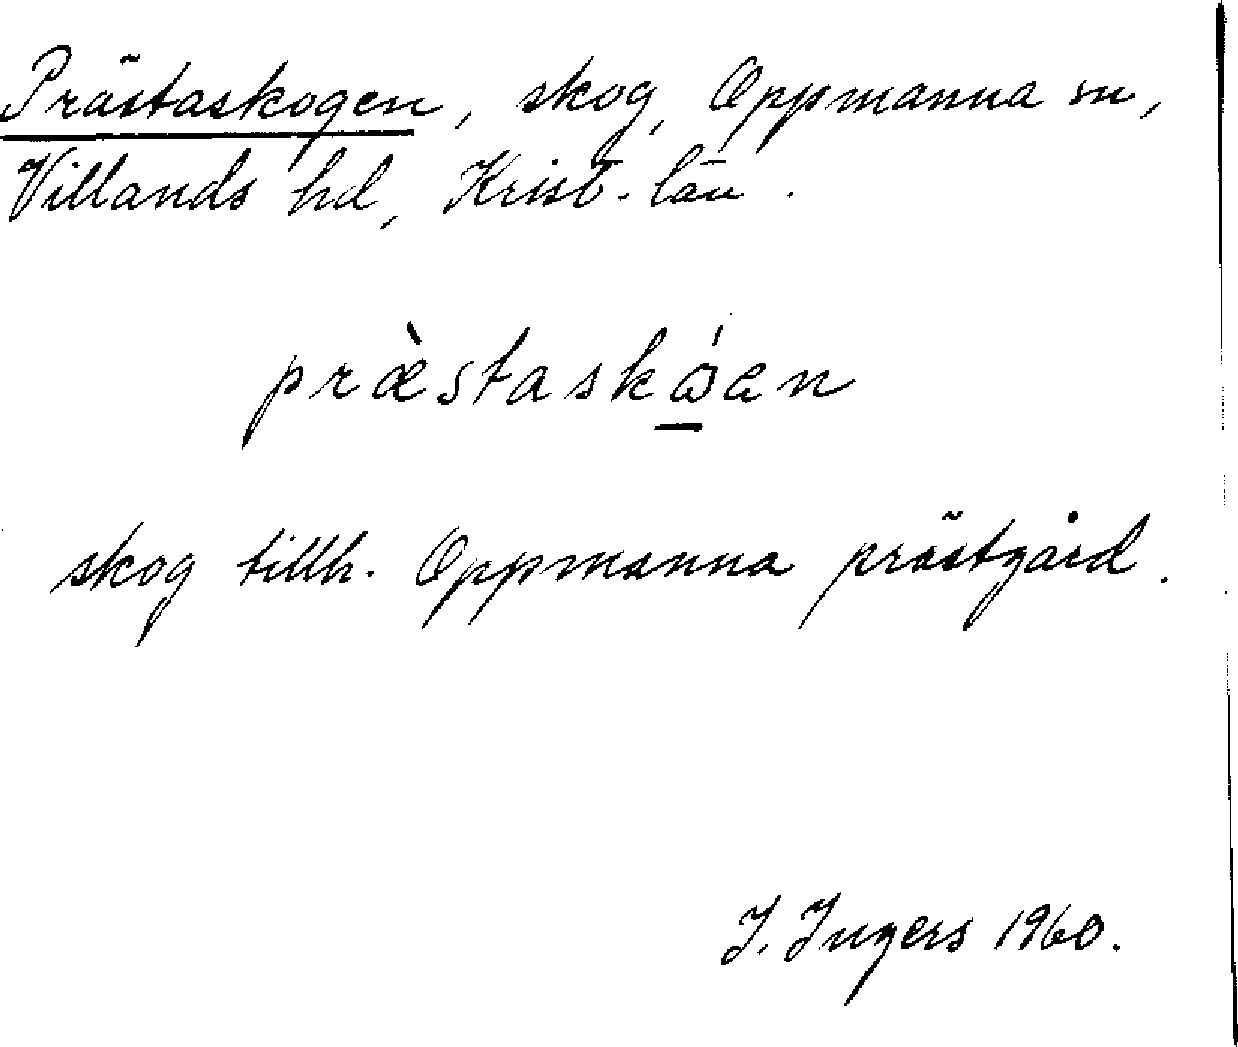 Prästaskogen, skog, Oppmanna sn,
Villands hd, Krist. län.
præ̀staskǻen
skog tillh. Oppmanna prästgård.
I. Ingers 1960.